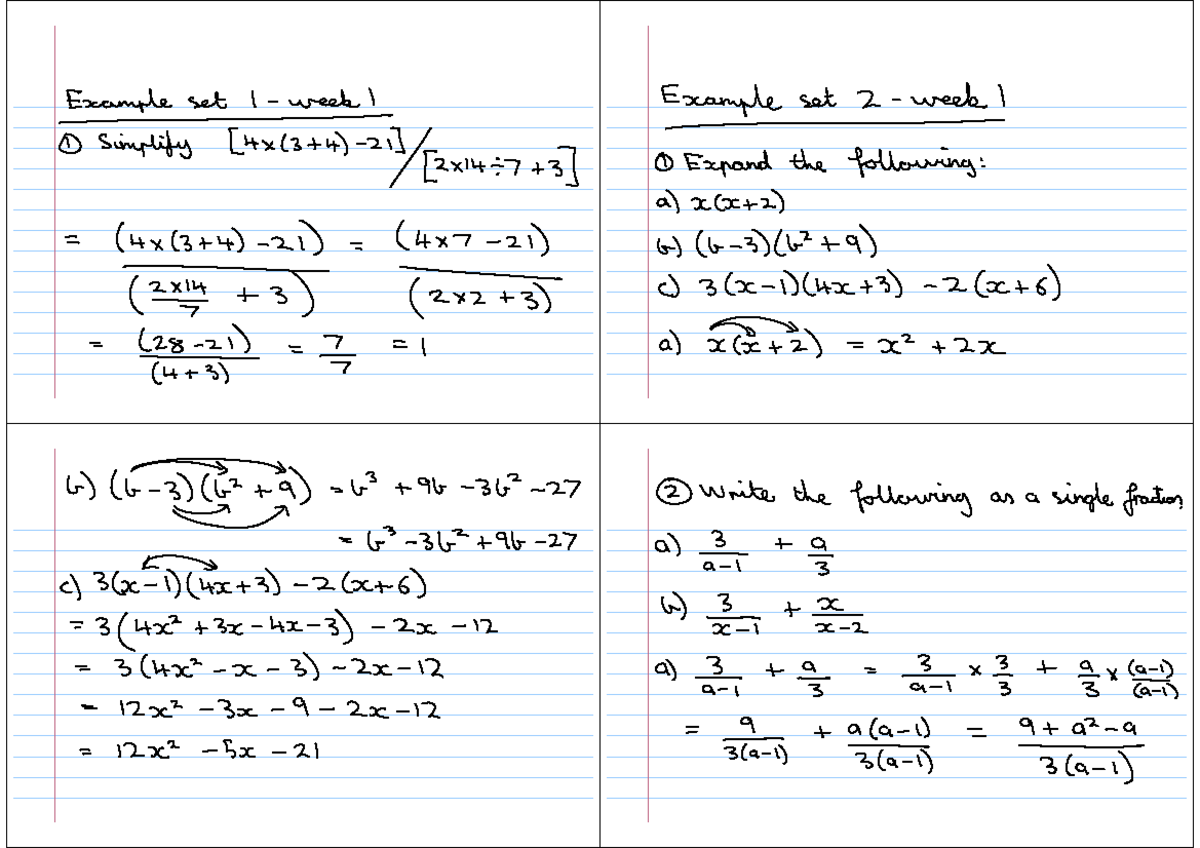 Example set 1 - week 1
① Simplify [4×(3+4)-21]/[2×14÷7+3]
= (4×(3+4)-21)/(2×14/7 + 3) = (4×7-21)/(2×2+3)
= (28-21)/(4+3) = 7/7 = 1
Example set 2 - week 1
① Expand the following:
a) x(x+2)
b) (b-3)(b²+9)
c) 3(x-1)(4x+3) - 2(x+6)
a) x(x+2) = x² + 2x
b) (b-3)(b²+9) = b³ + 9b - 3b² - 27
= b³ - 3b² + 9b - 27
c) 3(x-1)(4x+3) - 2(x+6)
= 3(4x² + 3x - 4x - 3) - 2x - 12
= 3(4x² - x - 3) - 2x - 12
= 12x² - 3x - 9 - 2x - 12
= 12x² - 5x - 21
② Write the following as a single fraction
a) 3/(a-1) + a/3
b) 3/(x-1) + x/(x-2)
a) 3/(a-1) + a/3 = 3/(a-1) × 3/3 + a/3 × (a-1)/(a-1)
= 9/3(a-1) + a(a-1)/3(a-1) = (9 + a² - a)/3(a-1)